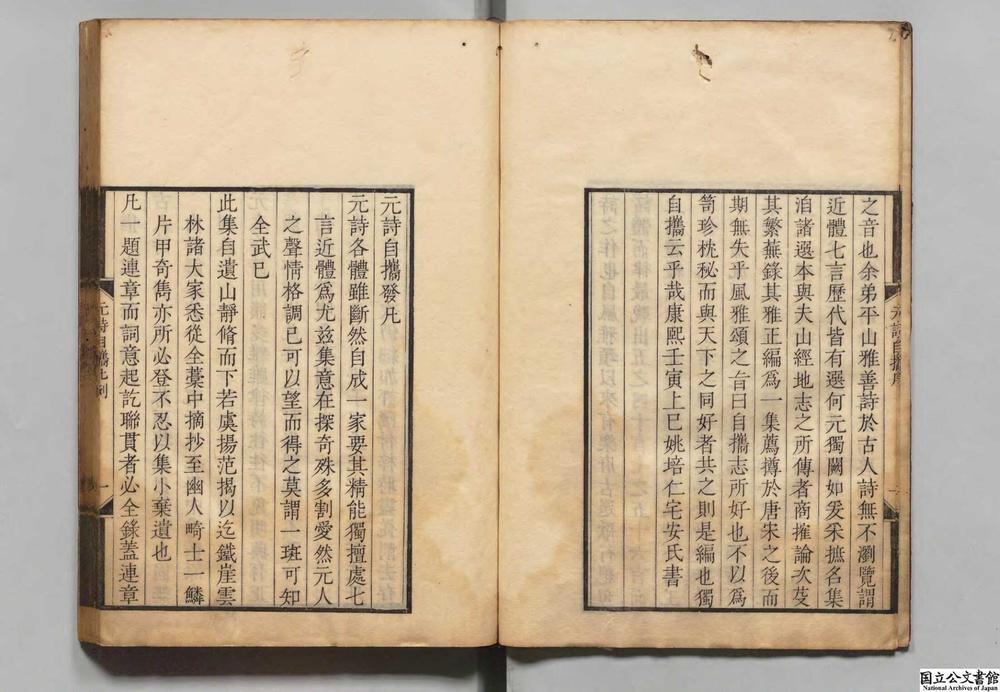 之音也余弟平山雅善詩於古人詩無不瀏覽謂
近體七言歷代皆有選何元獨闕如爰采摭名集
洎諸選本與夫山經地志之所傳者商搉論次芟
其繁蕪錄其雅正編爲一集薦摶於唐宋之後而
期無失乎風雅頌之旨曰自攜志所好也不以爲
笥珍枕秘而與天下之同好者共之則是編也獨
自攜云乎哉康熙壬寅上巳姚培仁宅安氏書
元詩自攜序
一
元詩自攜發凡
元詩各體雖斷然自成一家要其精能獨擅處七
言近體爲尤兹集意在探奇殊多割愛然元人
之聲情格調已可以望而得之莫謂一斑可知
全武已
此集自遺山靜脩而下若虞揚范揭以迄鐵崖雲
林諸大家悉從全藳中摘抄至幽人畸士一鱗
片甲奇雋亦所必登不忍以集小棄遺也
凡一題連章而詞意起訖聯貫者必全錄蓋連章
元詩自攜凡例
一
国立公文書館
National Archives of Japan